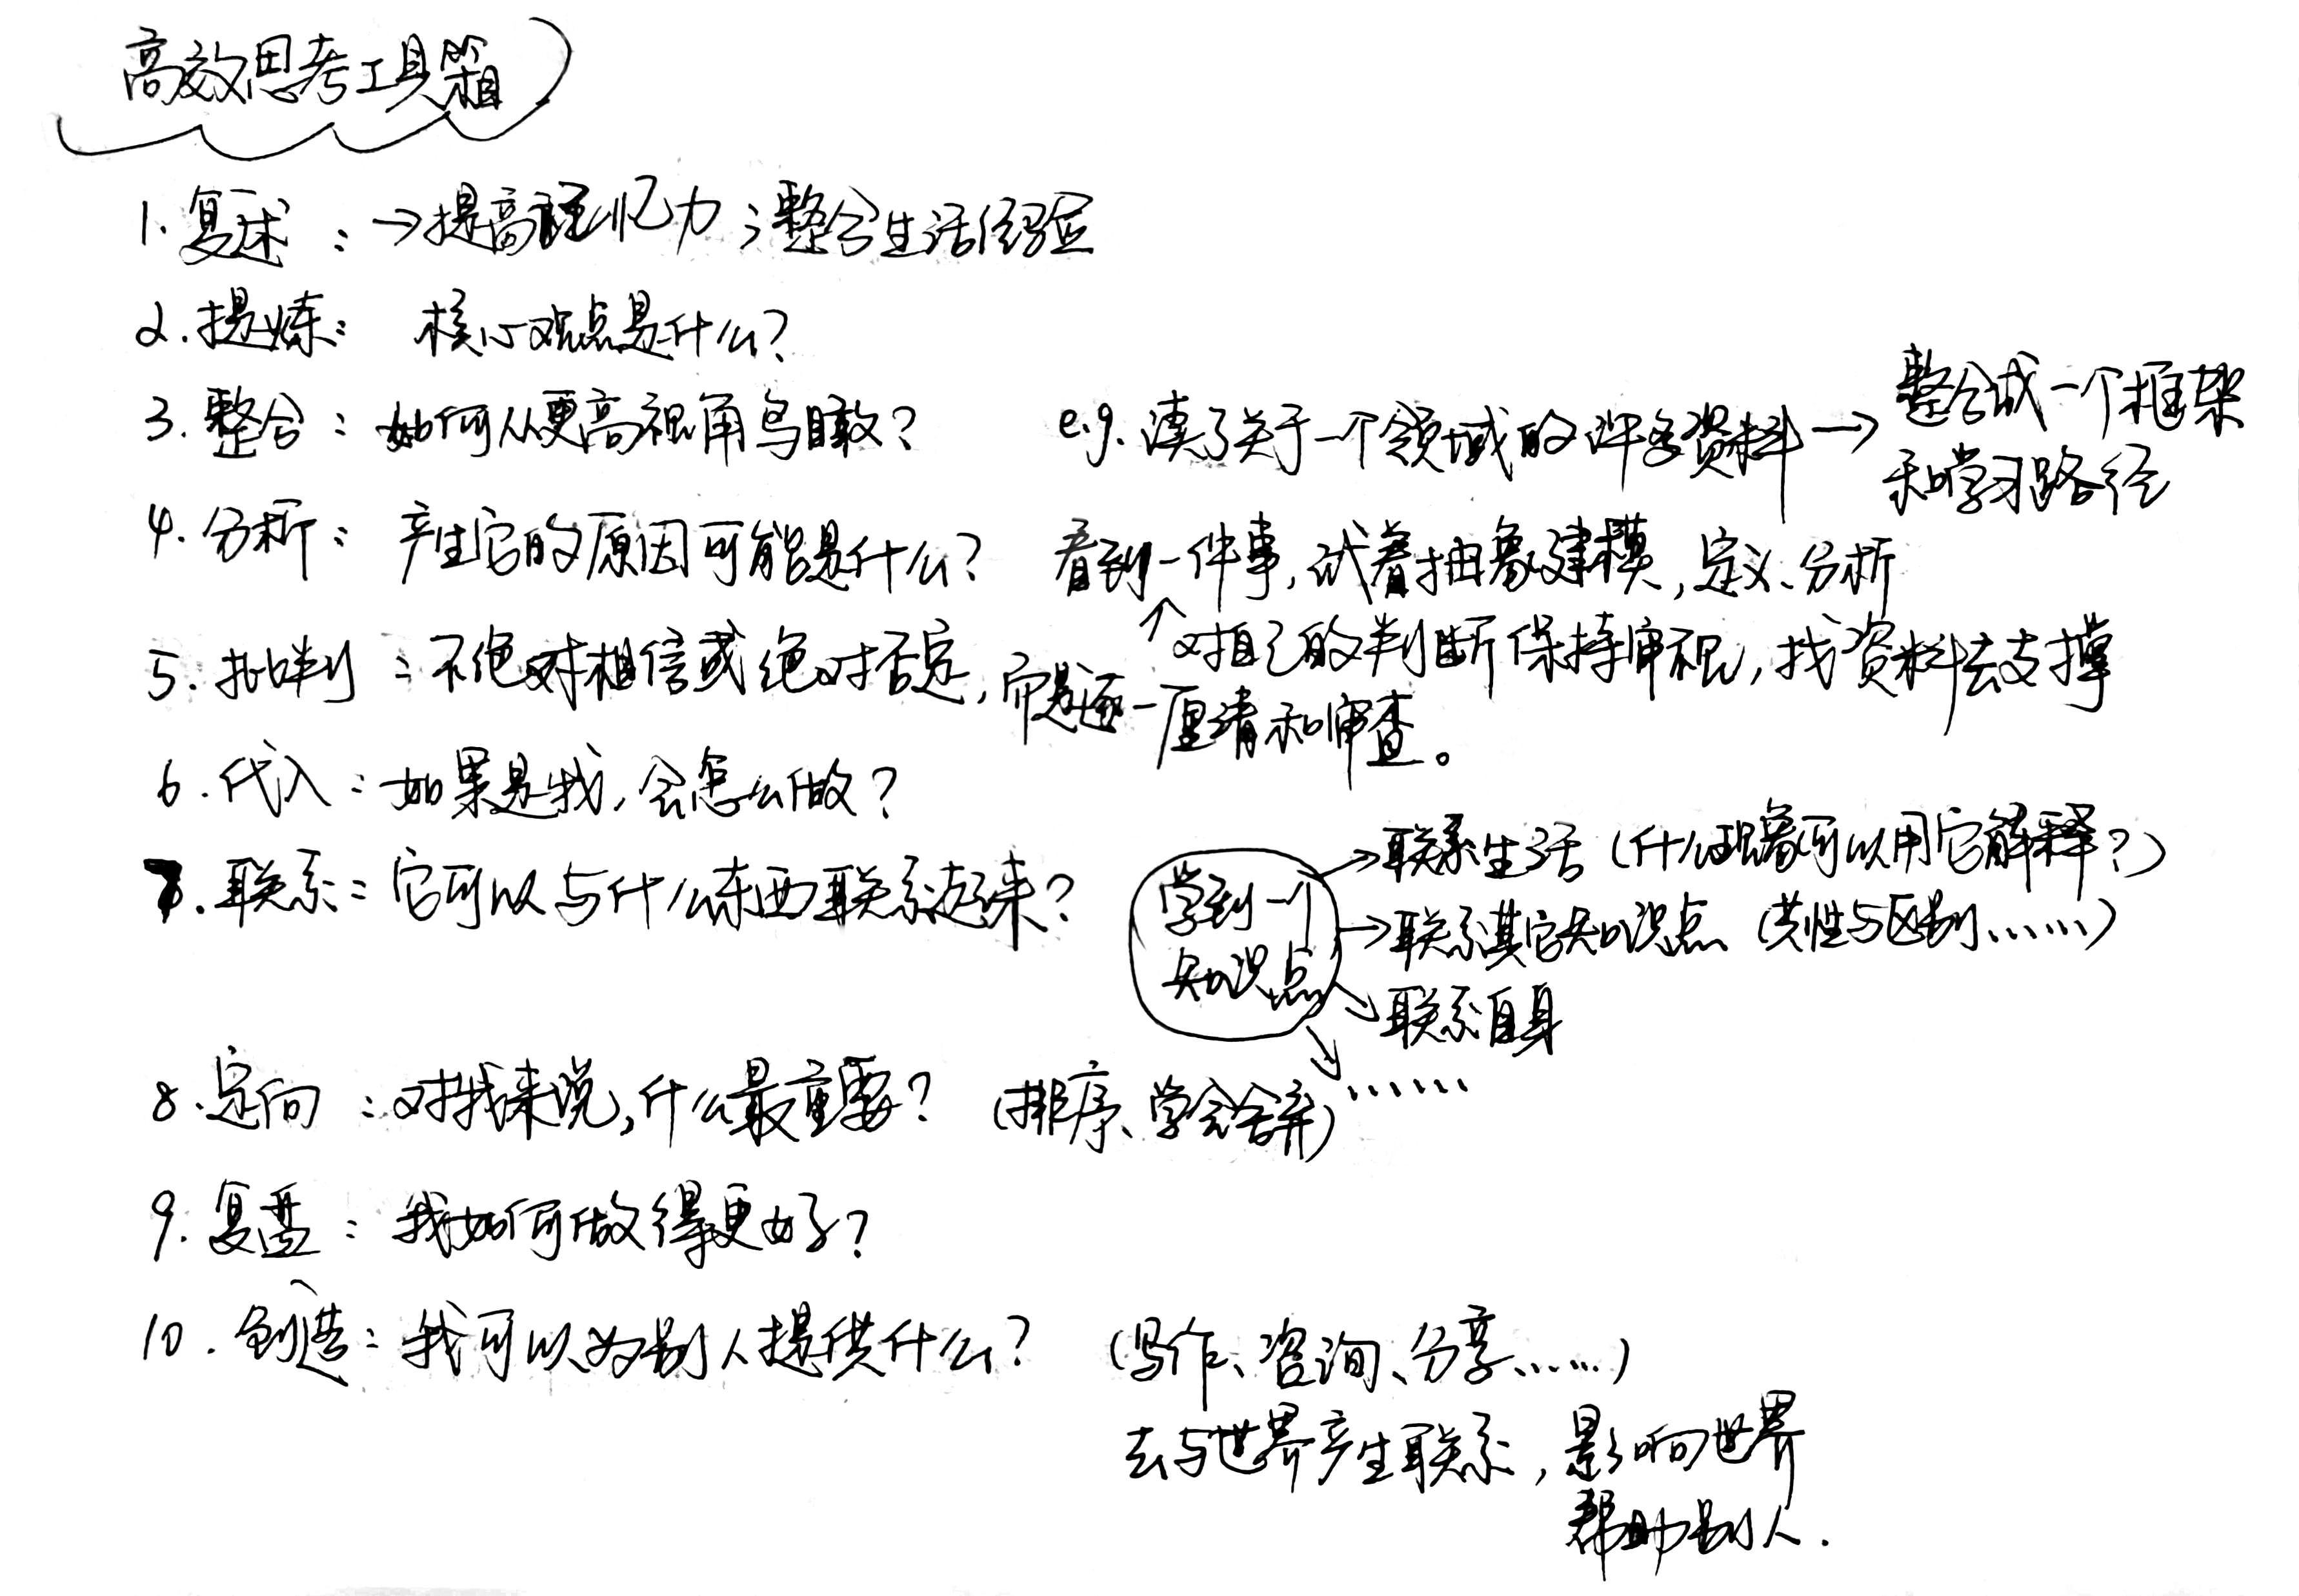 高效思考工具箱
1. 复述：→提高记忆力；整合生活经验
2. 提炼：核心观点是什么？
3. 整合：如何从更高视角鸟瞰？ e.g. 读了关于一个领域的许多资料→整合成一个框架
和学习路径
4. 分析：产生它的原因可能是什么？ 看到一件事，试着抽象建模，定义、分析
↑对自己的判断保持审视，找资料去支撑
5. 批判：不绝对相信或绝对否定，而是逐一厘清和审查。
6. 代入：如果是我，会怎么做？
7. 联系：它可以与什么东西联系起来？
学到一个
知识点
→联系生活（什么现象可以用它解释？）
→联系其它知识点（共性与区别……）
→联系自身
→……
8. 定向：对我来说，什么最重要？（排序、学会舍弃）
9. 复盘：我如何做得更好？
10. 创造：我可以为别人提供什么？（写作、咨询、分享……）
去与世界产生联系，影响世界
帮助别人.